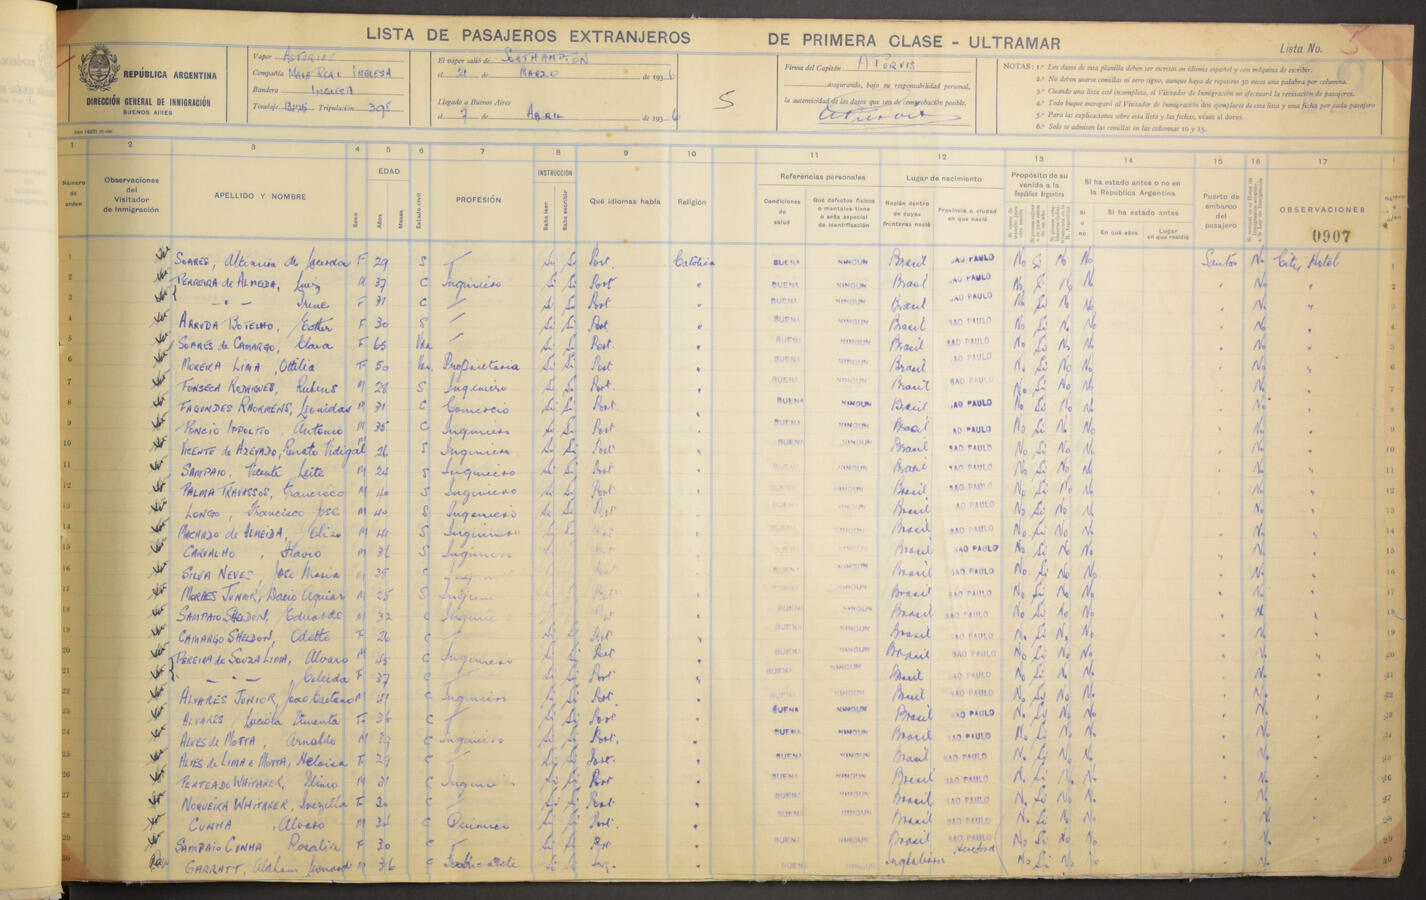 LISTA DE PASAJEROS EXTRANJEROS DE PRIMERA CLASE - ULTRAMAR
Lista No. 5
REPÚBLICA ARGENTINA
DIRECCIÓN GENERAL DE INMIGRACIÓN
BUENOS AIRES
Vapor ASTURIAS
Compañía MALA REAL INGLESA
Bandera INGLESA
Tonelaje Tripulación 395
El vapor salió de SOUTHAMPTON
el 21 de MARZO de 1936
Llegado a Buenos Aires
el 7 de ABRIL de 1936
5
Firma del Capitán A PURVIS
asegurando, bajo su responsabilidad personal,
la autenticidad de los datos que son de comprobación posible.
NOTAS: 1.ª Los datos de esta planilla deben ser escritos en idioma español y con máquina de escribir.
2.ª No deben usarse comillas ni otro signo, aunque haya de repetirse 30 veces una palabra por columna.
3.ª Cuando una lista esté incompleta, el Visitador de Inmigración no efectuará la revisación de pasajeros.
4.ª Todo buque entregará al Visitador de Inmigración dos ejemplares de esta lista y una ficha por cada pasajero
5.ª Para las explicaciones sobre esta lista y las fichas, véase al dorso.
6.ª Solo se admiten las comillas en las columnas 10 y 15.
1 2 3 4 5 6 7 8 9 10 11 12 13 14 15 16 17
Número de orden
Observaciones del Visitador de Inmigración
APELLIDO Y NOMBRE
Sexo
EDAD
Años
Meses
Estado civil
PROFESIÓN
INSTRUCCION
Sabe leer
Sabe escribir
Qué idiomas habla
Religión
Referencias personales
Condiciones de salud
Qué defectos físicos o mentales tiene o seña especial de identificación
Lugar de nacimiento
Nación dentro de cuyas fronteras nació
Provincia o ciudad en que nació
Propósito de su venida a la República Argentina
Si ha estado antes o no en la República Argentina
Si o no
Si ha estado antes
En qué años
Lugar en que residió
Puerto de embarco del pasajero
OBSERVACIONES
0907
1 SOARES, de Lacerda F 29 S Si Si Port. Católica BUENA NINGUN Brasil SAO PAULO No Si No No Santos No City Hotel
2 FERREIRA de ALMEIDA, Luiz M 37 C Ingeniero Si Si Port " BUENA NINGUN Brasil SAO PAULO No Si No No " No "
3 " Irene F 31 C Si Si Port " BUENA NINGUN Brasil SAO PAULO No Si No No " No "
4 ARRUDA BOTELHO, Esther F 30 S Si Si Port. " BUENA NINGUN Brasil SAO PAULO No Si No No " No "
5 SOARES de CAMARGO, Clara F 65 Si Si Port. " BUENA NINGUN Brasil SAO PAULO No Si No No " No "
6 MOREIRA LIMA, Ottilia F 50 Propietaria Si Si Port. " BUENA NINGUN Brasil SAO PAULO No Si No No " No "
7 FONSECA RODRIGUES, Rubens M 28 S Ingeniero Si Si Port. " BUENA NINGUN Brasil SAO PAULO No Si No No " No "
8 FAGUNDES Leonidas M 31 C Comercio Si Si Port. " BUENA NINGUN Brasil SAO PAULO No Si No No " No "
9 PONCIO IPPOLITO, Antonio M 35 C Ingeniero Si Si Port. " BUENA NINGUN Brasil SAO PAULO No Si No No " No "
10 VICENTE de AZEVEDO, Renato Vidigal M 26 S Ingeniero Si Si Port " BUENA NINGUN Brasil SAO PAULO No Si No No " No "
11 SAMPAIO, Vicente Leite M 24 S Ingeniero Si Si Port " BUENA NINGUN Brasil SAO PAULO No Si No No " No "
12 PALMA TRAVASSOS, Francisco M 40 S Ingeniero Si Si Port " BUENA NINGUN Brasil SAO PAULO No Si No No " No "
13 LONGO, Francisco José M 40 S Ingeniero Si Si Port " NINGUN Brasil SAO PAULO No Si No No " No "
14 MACHADO de ALMEIDA, M 44 S Ingeniero Si Si Port " NINGUN Brasil SAO PAULO No Si No No " No "
15 CARVALHO, Flavio M 36 S Ingeniero " NINGUN Brasil SAO PAULO No Si No No " No "
16 SILVA NEVES, José Maria M 38 C " NINGUN Brasil SAO PAULO No Si No No " No "
17 MORAES JUNIOR, Dacio Aguiar M 25 S " NINGUN Brasil SAO PAULO No Si No No " No "
18 SAMPAIO SHELDON, Eduardo M 32 C " BUENA NINGUN Brasil SAO PAULO No Si No No " No "
19 CAMARGO SHELDON, Odette F 26 C Si Si Port " BUENA NINGUN Brasil SAO PAULO No Si No No " No "
20 PEREIRA de SOUZA LIMA, Alvaro M 45 C Ingeniero Si Si Port " BUENA NINGUN Brasil SAO PAULO No Si No No " No "
21 " F 37 C Si Si Port. " BUENA NINGUN Brasil SAO PAULO No Si No No " No "
22 ALVARES JUNIOR, Joao Caetano M 41 C Ingeniero Si Si Port. " BUENA NINGUN Brasil SAO PAULO No Si No No " No "
23 ALVARES, Luciola Pimenta F 36 C Si Si Port. " BUENA NINGUN Brasil SAO PAULO No Si No No " No "
24 ALVES de MOTTA, Arnaldo M C Ingeniero Si Si Port. " BUENA NINGUN Brasil SAO PAULO No Si No No " No "
25 ALVES de LIMA e MOTTA, Heloisa F 29 C Si Si Port. " BUENA NINGUN Brasil SAO PAULO No Si No No " No "
26 PENTEADO WHITAKER, Plinio M 31 C Ingeniero Si Si Port " BUENA NINGUN Brasil SAO PAULO No Si No No " No "
27 NOGUEIRA WHITAKER, F 30 C Si Si Port. " BUENA NINGUN Brasil SAO PAULO No Si No No " No "
28 CUNHA, Alvaro M 34 C Quimico Si Si Port. " BUENA NINGUN Brasil SAO PAULO No Si No No " No "
29 SAMPAIO CUNHA Rosalia F 30 C Si Si Port " BUENA NINGUN Brasil SAO PAULO No Si No No " No "
30 GARRATT, Leonard M 36 C Si Si Ing. " BUENA NINGUN Inglaterra No Si No No " No "